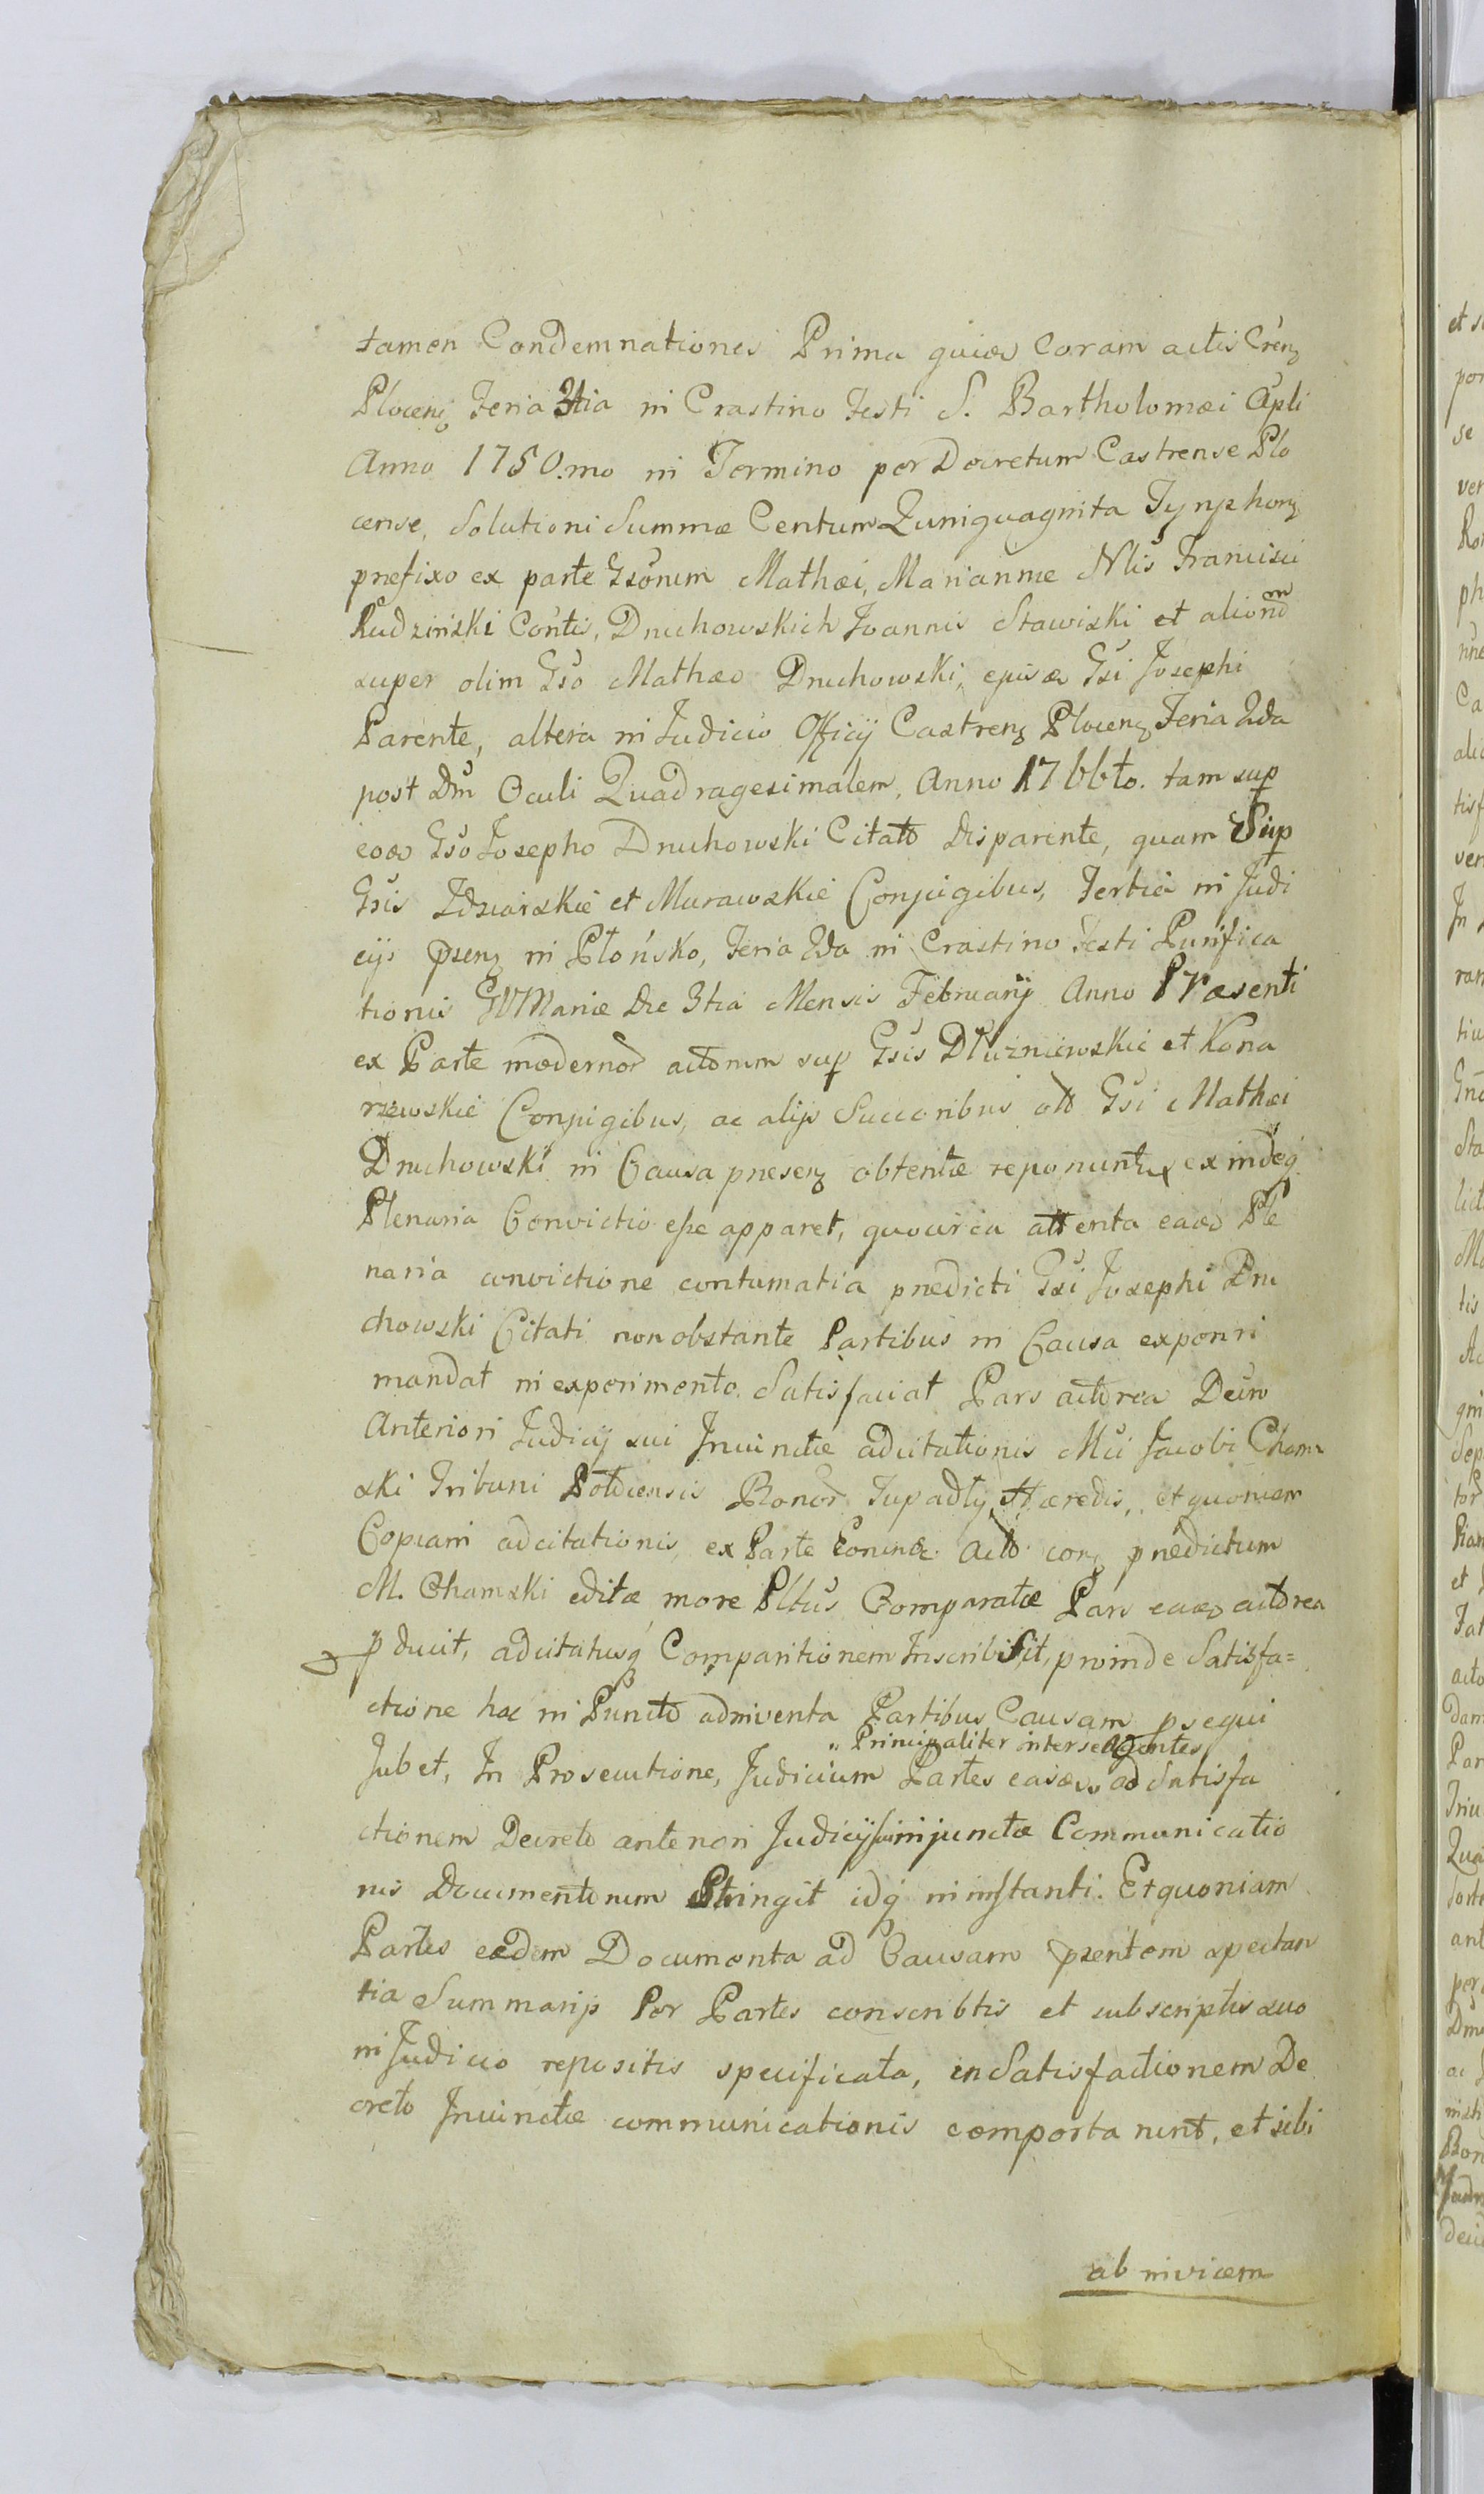 tamen Condemnationes Prima quidẽ Coram actis Crenz
Plocenz Feria 3tia in Crastino Festi S. Bartholomæi Apli
Anno 1750.mo in Termino per Decretum Castrense Plo
cense, Solutioni Summæ Centum Quinquaginta Tynphonz
prefixo ex parte Gsorum Mathæi, Marianne Nlis Francisci
Rudzinski Contis, Druchowskich Joannis Stawiski et aliorum
super olim Gso Mathæo Druchowski, ejusdẽ Gsi Josephi
Parente, altera in Judicio Officÿ Castrenz Plocenz Feria 2da
post Dm Oculi Quadragesimalem, Anno 1766to. tam sup
eodẽ Gso Josepho Druchowski Citato disparente, quam Sup
Gsis Idziarskie et Murawskie Conjugibus, Tertia in Judi
cijs pzenz in Płońsko, Feria 2da in Crastino Festi Purifica
tionis BVMariæ Die 3tia Mensis Februarij Anno Præsenti
ex Parte modernor actorum sup Gsis Dłużniewskie et Kona
rzewskie Conjugibus, ac alijs Succoribus ol Gsi Mathæi
Druchowski in Causa presenz obtentæ reponuntur exindeq
Plenaria Convictio esse apparet, quocirca attenta eadẽ Ple
naria convictione contumatia prædicti Gsi Josephi Dru
chowski Citati non obstante Partibus in Causa experiri
mandat in experimento Satisfaciat Pars actorea Decro
Anteriori Judicÿ sui Injunctæ adcitationis Mci Jacobi Cham
ski Tribuni Plocensis Bonor Tupadły Hæredis, et quoniam
Copiam adcitationis, ex Parte Eorundẽ Acto conz prædictum
M. Chamski editæ more Pltus Comparatæ Pars eadẽ actorea
pducit, adcitatusq Comparitionem Inscribi sit, proinde Satisfa=
ctione hac in Puncto adinventa Partibus Causam psequi
" Principaliter inter se Agentes
Jubet, In Prosecutione, Judicium Partes easdẽ ad Satisfa
ctionem Decreto anteriori Judicÿ sui injunctæ Communicatio
nis Documentorum Stringit idq in instanti. Et quoniam
Partes eædem Documenta ad Causam pzentem spectan
tia Summarijs Per Partes conscribtis et subscriptis suo
in Judicio repositis specificata, in Satisfactionem De
creto Injunctæ communicationis comportarunt, et sibi
ab invicem